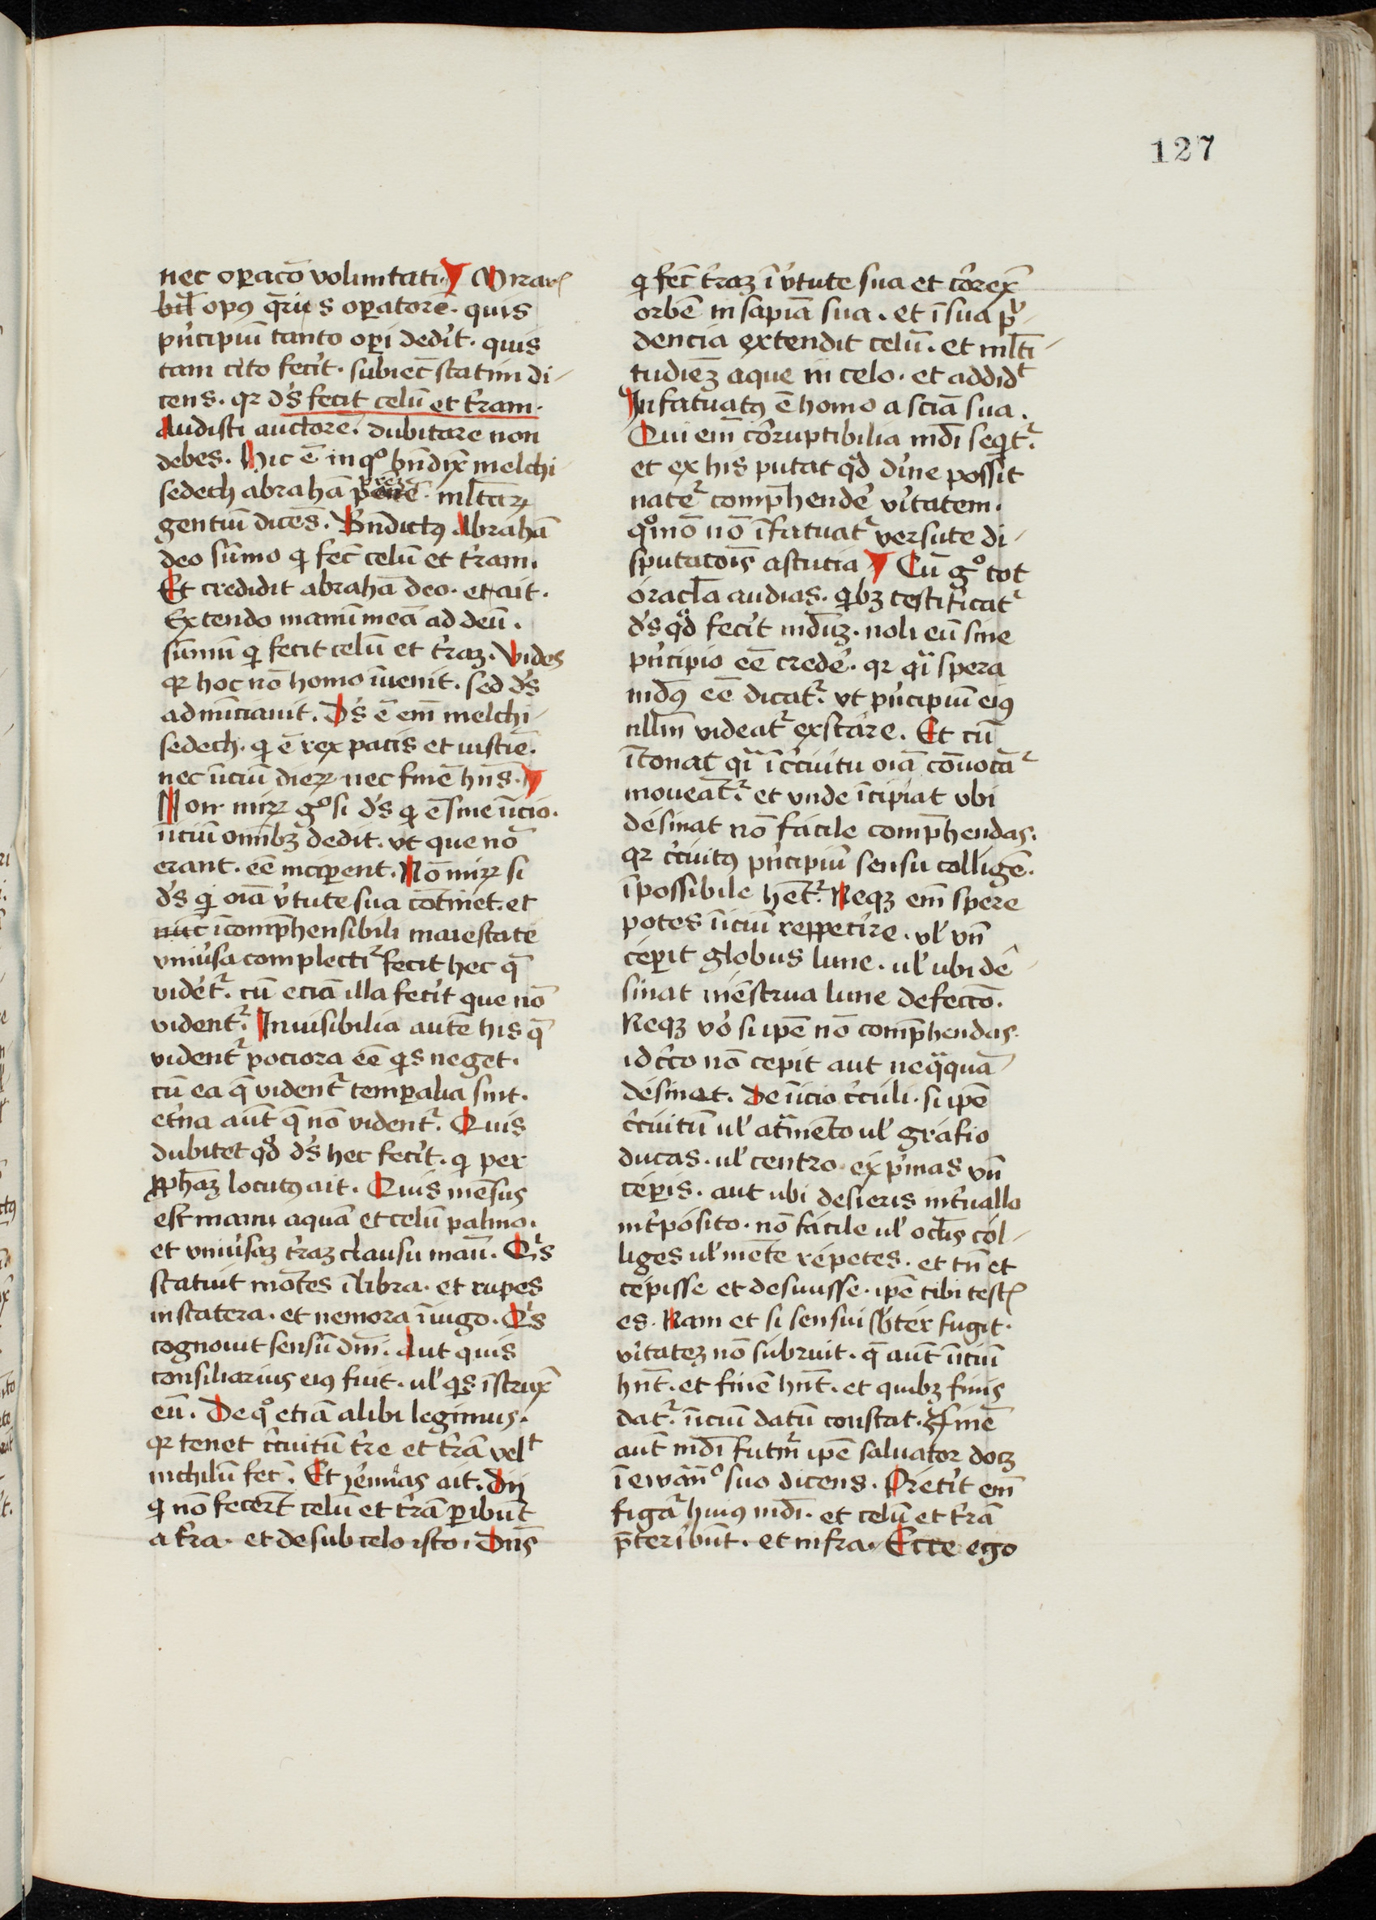 127
nec oꝑacō voluntati· Mirar⸗
bił opꝰ q̄ris oꝑatore· quis
pͥncipiū tanto oꝑi dedit· quis
tam cito fecit· subiec̄ statim di⸗
cens· qꝛ dˀs fecit celū et tˀram·
Audisti auctorē· dubitare non
debes· Hic ē in qͦ bn̄dix̄ melchi
sedech abrahā mltaꝝ
gentiū dicēs· Bn̄dictꝰ Abrahā
deo sūmo qͥ fec̄ celū et tˀram·
Et credidit abrahā deo· et ait·
Extendo manū meā ad deū·
sūmū qͥ fecit celū et tˀraꝫ· Vides
qꝛ hoc nō homo īuenit· sed dˀs
adnūciauit· Dˀs ē em̄ melchi⸗
sedech· qͥ ē rex pacis et iusticīe·
nec īiciū dieꝝ nec finē hn̄s·
Non miꝝ gͦ si dˀs qͥ ē sine īicio·
īiciū om̄ibꝫ dedit· vt que nō
erant· eē inciꝑent· Nō miꝝ si
dˀs qͥ oīa vˀtute sua cōtinet· et
īcomp̄hensibili maiestate
vniuˀsa complectitᷣ fecit hec q̄
vidētᷣ· cū eciā illa fecit que nō
videntᷣ· Inuisibilia autē his q̄
videntᷣ pociora eē qͥs neget·
cū ea q̄ videntᷣ temꝑalia sint·
etˀna aūt q̄ nō videntᷣ· Quis
dubitet qđ dˀs hec fecit· qͥ per
ꝓph̄aꝫ locutꝰ ait· Quis mēsus
est manu aquā et celū palmo·
et vniuˀsaꝫ tˀraꝫ clausu manū· Qͥs
statuit mōtes ī libra· et rupes
in statera· et nemora ī iugo· Qͥs
cognouit sensū dn̄i· Aut quis
consiliarius eiꝰ fuit· ul' qͥs īstrux̄
eū· De qͦ etiā alibi legimus·
qꝛ tenet cͥcuitū tˀre et tˀrā velᵗ
nichilū fec̄· Et Jeͣmias ait· Dij
qͥ nō fecerūt celū et tˀrā ꝑibūt
a tˀra· et de sub celo isto· Dn̄s
qͥ fec̄ tˀraꝫ ī vˀtute sua et cōrex̄
orbē in sapīa sua· et ī sua pͮ⸗
dencia extendit celū· et mlti⸗
tudiēꝫ aque in celo· et addidᵗ
Infatuatꝰ ē homo a scīa sua·
Qui em̄ cōruptibilia mdī seqͥtᷣ·
et ex his putat qđ diīne possit
natē comp̄hendˀe vˀitatem·
qͦmō nō īfatuatᷣ versute di⸗
sputacōis astucia Cū gͦ tot
oracl̄a audias· qͥbꝫ testificatᷣ
dˀs qđ fecit mdūꝫ· noli eū sine
pͥncipio eē credˀe· qꝛ qͣi spera
mdꝰ eē dicatᷣ· vt pͥncipiū eiꝰ
nll̄m videatᷣ exstare· Et cū
ītonat qͣi ī cͥcuitu oīa cōuotātᷣ
moueātᷣ· et vnde īcipiat vbi
desinat nō facile comp̄hendas·
qꝛ cͥcuitꝰ pͥncipiū sensu colligē·
īpossibile hētᷣ· Neqꝫ em̄ spere
potes īiciū reppetire· ul' vn̄
ceꝑit globus lune· ul' ubi de⸗
sinat mēstrua lune defectō·
Neqꝫ vˀo si ipē nō comp̄hendas·
idcͥco nō cepit aut neqͣquā
desinat· De īicio cͥculi· si ipē
cͥcuitū ul' atͣmēto ul' grafio
ducas· ul' centro exp̄mas vn̄
ceꝑis· aut ubi desieris intˀuallo
intˀposito· nō facile ul' oclīs col⸗
liges ul' mēte repetes· et tn̄ et
cepisse et desiuisse· ipē tibi test⸗
es· Nam et si sensui sb'ter fugit·
vˀitateꝫ nō subruit· q̄ aūt īiciū
hn̄t· et finē hn̄t· et quibꝫ finis
datᷣ· īiciū datū constat· Finē
aūt mdī futurū ipē saluator docꝫ
ī ewāno suo dicens· P̄terit em̄
figͣa huiꝰ mdī· et celū et tˀrā
p̄teribūt· et infra· Ecce ego